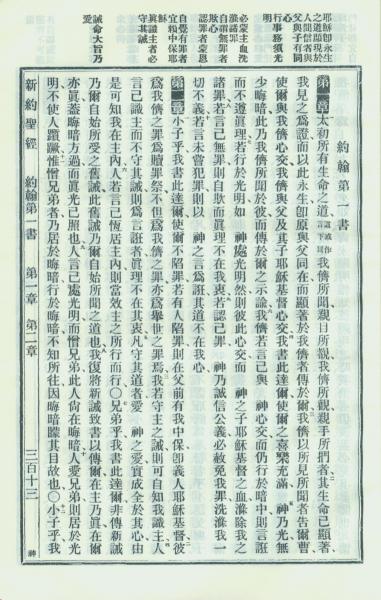 約翰第一書
耶穌卽永生
之道顯現於
人間信者與
父與子有同
心
行事務須光
明
必蒙主血洗
滌諸罪
自謂無罪者
自欺
認罪者蒙恩
自覺有罪者
宜賴中保耶
穌
眞識主者必
守其誡
誡命大旨乃
愛
第一章 太初所有生命之道道或作言下同我儕所聞親目所觀我儕所觀親手所捫者其生命已顯著
我見之爲證而以此永生卽原與父同在而顯著於我儕者傳於爾我儕以所見所聞者告爾曹
使爾與我儕心交我儕與父及其子耶穌基督心交我書此達爾使爾之喜樂充滿 神乃光無
少晦暗此乃我儕所聞於彼而傳於爾之示諭我儕若言己與 神心交而仍行於暗中則言誑
而不遵眞理若行於光明如 神處光明然則彼此心交而 神之子耶穌基督之血滌除我之
諸罪若言己無罪則自欺而眞理不在我衷若認己罪 神乃誠信公義必赦免我罪洗滌我一
切不義若言未嘗犯罪則以 神之言爲誑其道不在我心
第二章 小子乎我書此達爾使爾不陷罪若有人陷罪則在父前有我中保卽義人耶穌基督彼
爲我儕之罪爲贖罪祭不但爲我儕之罪亦爲舉世之罪焉我若守主之誡則可自知我識主人
言已識主而不守其誡則爲言誑者眞理不在其衷凡守其道者愛 神之愛實成全於其心由
是可知我在主內人若言己恆居主內則當效主之所行而行○兄弟乎我書此達爾非傳新誡
乃爾自始所受之舊誡此舊誡乃爾自始所聞之道也我復將新誡致書以傳爾在主乃眞在爾
亦眞蓋晦暗方過而眞光已照也人言己處光明而憎兄弟此人尚在晦暗人愛兄弟則居於光
明不使人躓蹶惟憎兄弟者乃居於晦暗行於晦暗不知所往因晦暗矇其目故也○小子乎我
新約聖經 約翰第一書 第一章 第二章 三百十三 神